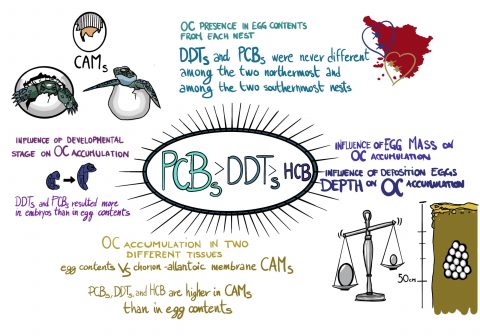 OC PRESENCE IN EGG CONTENTS
FROM EACH NEST
DDTs and PCBs were never different
among the two northermost and
among the two southernmost nests
CAMs
INFLUENCE OF DEVELOPMENTAL
STAGE ON OC ACCUMULATION
DDTs and PCBs resulted more
in embryos than in egg contents
PCBs > DDTs > HCB
INFLUENCE OF EGG MASS ON
OC ACCUMULATION
INFLUENCE OF DEPOSITION EGGS
DEPTH ON OC ACCUMULATION
OC ACCUMULATION IN TWO
DIFFERENT TISSUES
egg contents VS chorion-allantoic membrane CAMs
PCBs, DDTs, and HCB are higher in CAMs
than in egg contents
50cm